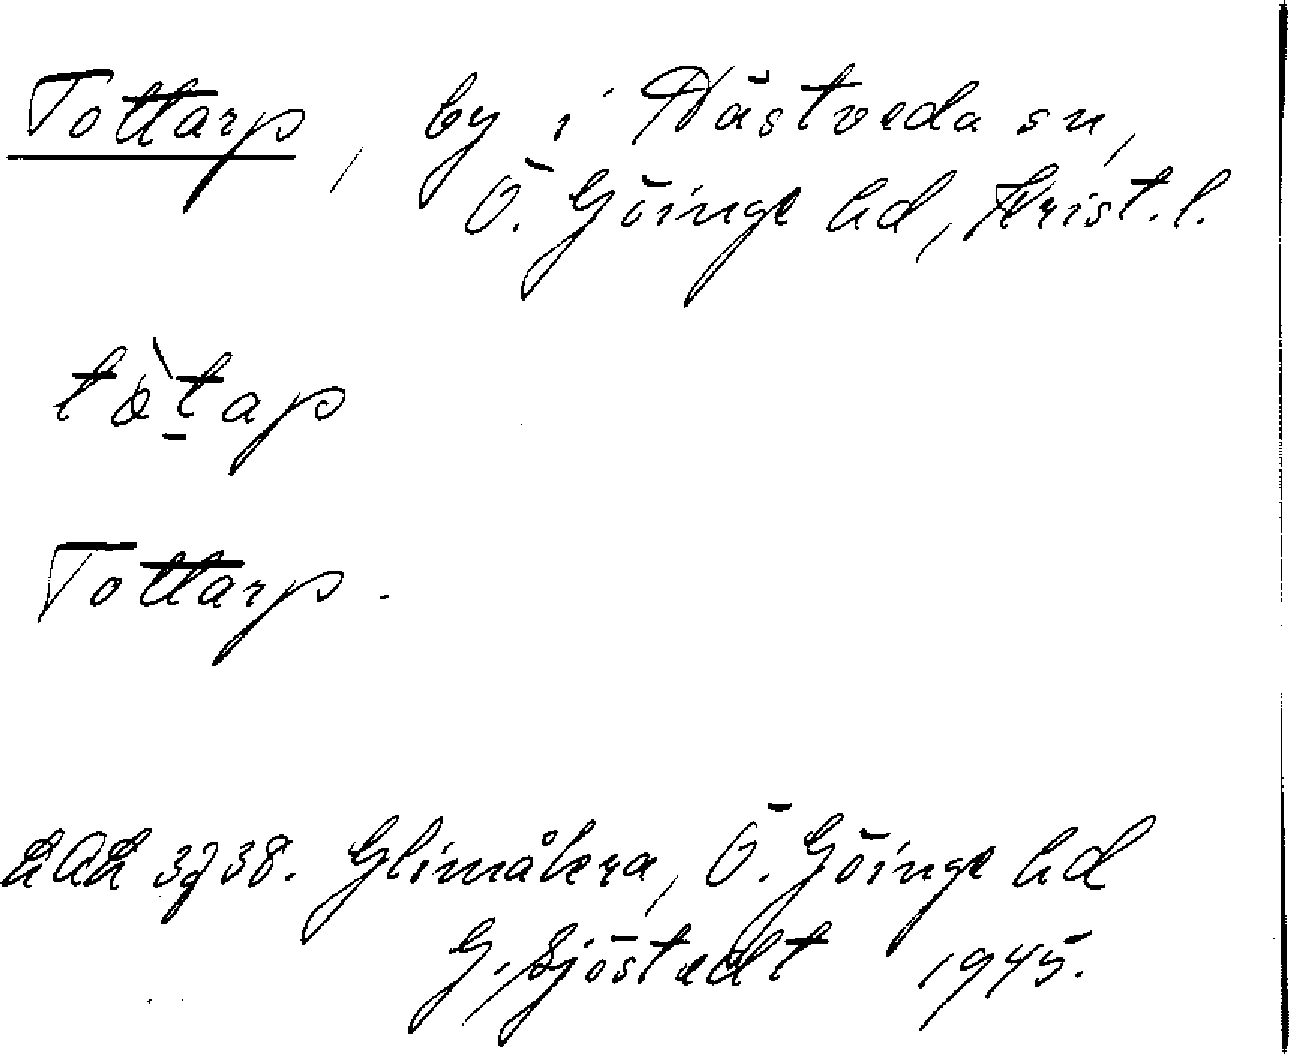 Tottarp, by i Hästveda sn,
Ö. Göinge hd, Krist. l.
tòt̠ap
Tottarp.
Glimåkra, Ö. Göinge hd
G. Sjöstedt 1945.